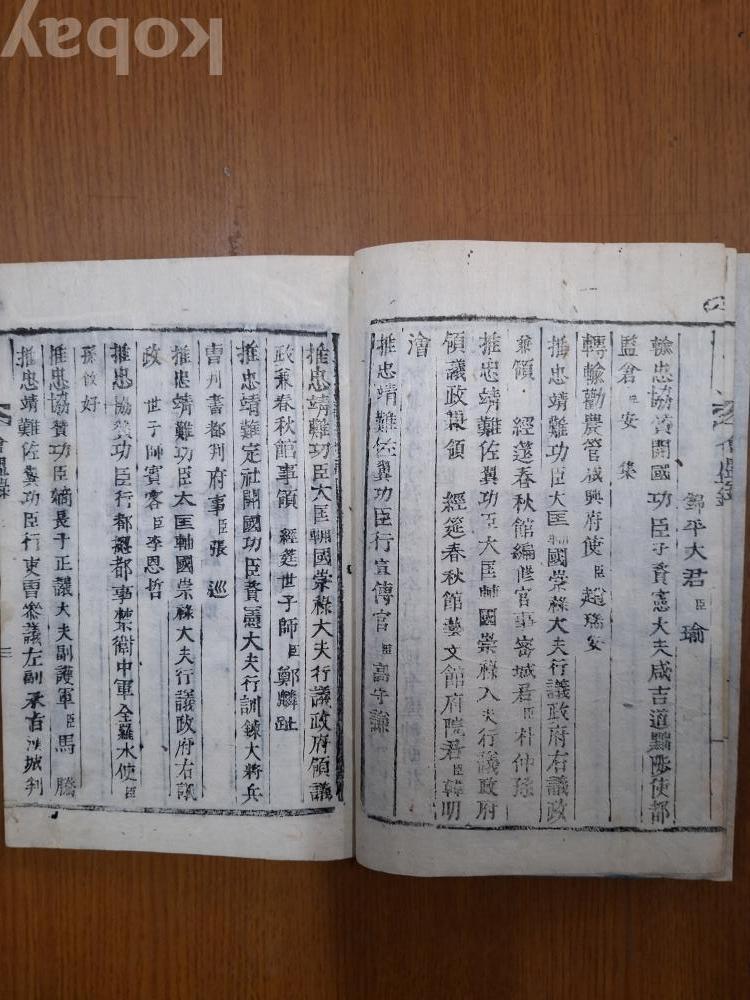 錦平大君臣瑜
輸忠協贊開國功臣子資憲大夫咸吉道黜陟使都
監倉臣安集
轉輸勸農管咸興府使臣趙瑞安
推忠靖難功臣大匡輔國崇祿大夫行議政府右議政
兼領 經筵春秋館編修官事密城君臣朴仲孫
推忠靖難佐翼功臣大匡輔國崇祿大夫行議政府
領議政兼領 經筵春秋館藝文館府院君臣韓明
澮
推忠靖難佐翼功臣行宣傳官臣高守謙
推忠靖難功臣大匡輔國崇祿大夫行議政府領議
政兼春秋館事領 經筵世子師臣鄭麟趾
推忠靖難定社開國功臣資憲大夫行訓鍊大將兵
曹判書都判府事臣張巡
推忠靖難功臣大匡輔國崇祿大夫行議政府右議
政 世子師賓客臣李思哲
推忠協贊功臣行都摠都事禁衛中軍全羅水使臣
孫攸好
推忠協贊功臣嫡長子正議大夫副護軍臣馬騰
推忠靖難佐翼功臣行吏曹參議左副承旨漢城判
會盟錄
三
kobay